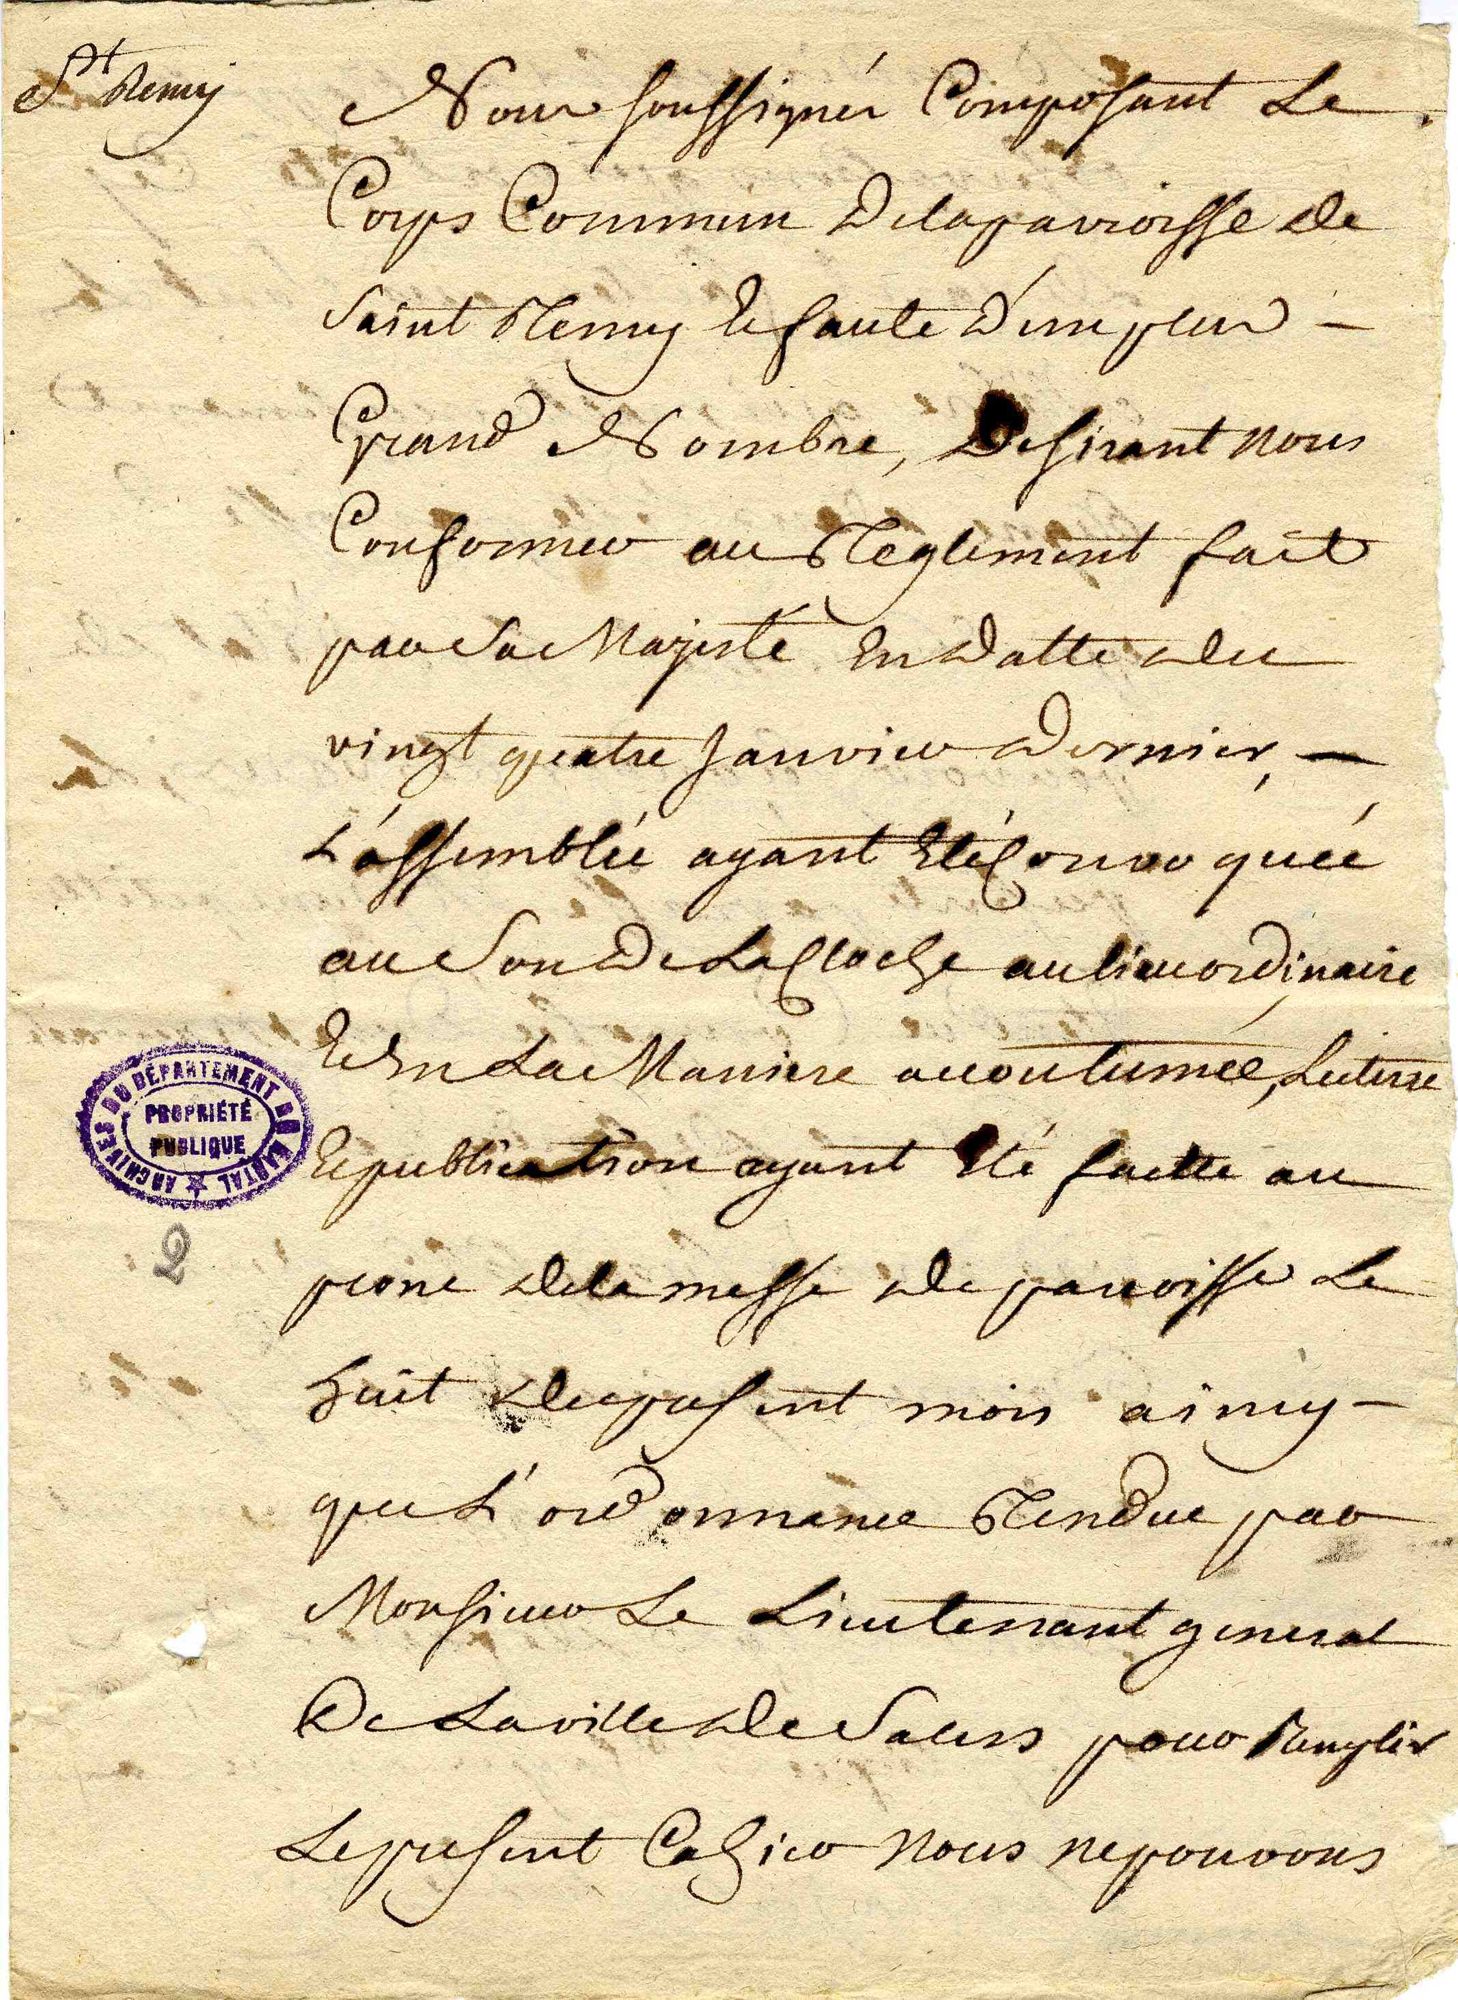 St Remy
Nous soussignés Composant Le
Corps Commun De la parroisse de
Saint Remy Et faute d'un plus
Grand Nombre, Desirant nous
Conformer au Reglement fait
par Sa Majesté En datte du
vingt quatre Janvier Dernier,
L'assemblée ayant Eté Convoquée
au Son De La Cloche au lieu ordinaire
Et En La Maniere accoutumée, Lecture
Et publication ayant Eté faitte au
prone de la messe de parroisse Le
huit du present mois ainsy
que L'ordonnance Rendue par
Monsieur Le Lieutenant general
De La ville de Salers pour Remplir
Le present Cahier Nous ne pouvons
ARCHIVES DU DÉPARTEMENT DU CANTAL
PROPRIÉTÉ
PUBLIQUE
2